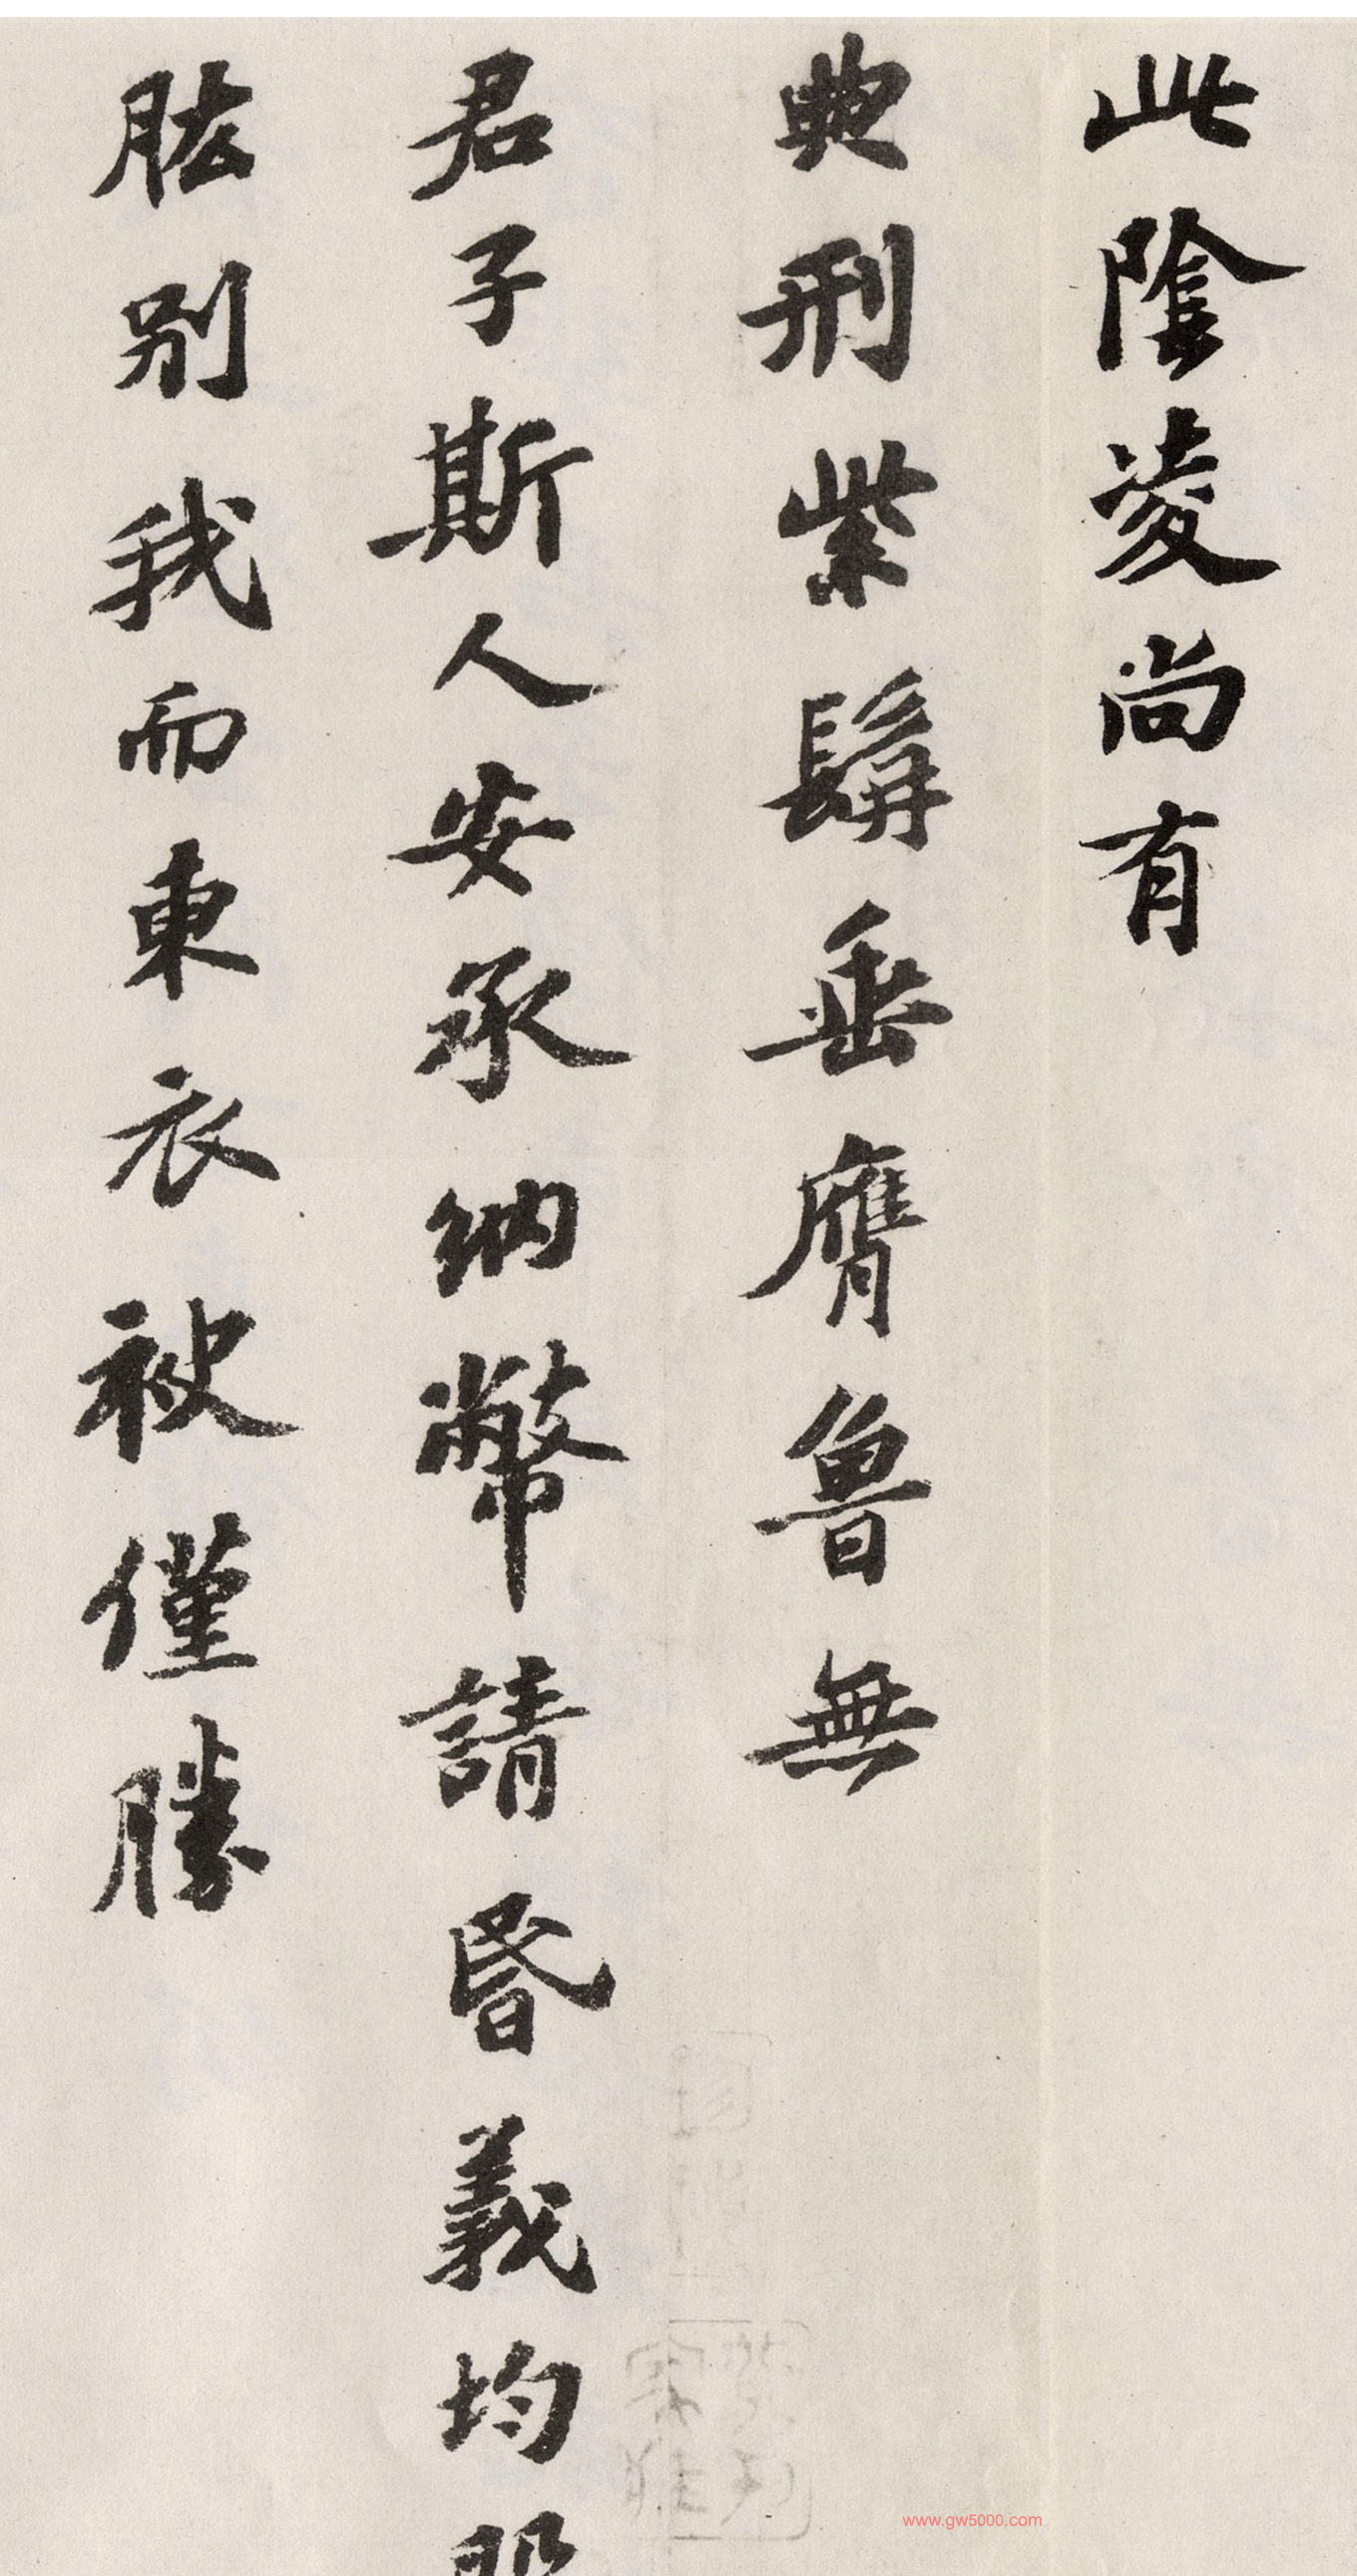 此陰凌尚有
典刑紫髯垂膺魯無
君子斯人安承納幣請昬義均股
肱别我而東衣被僅勝
www.gw5000.com